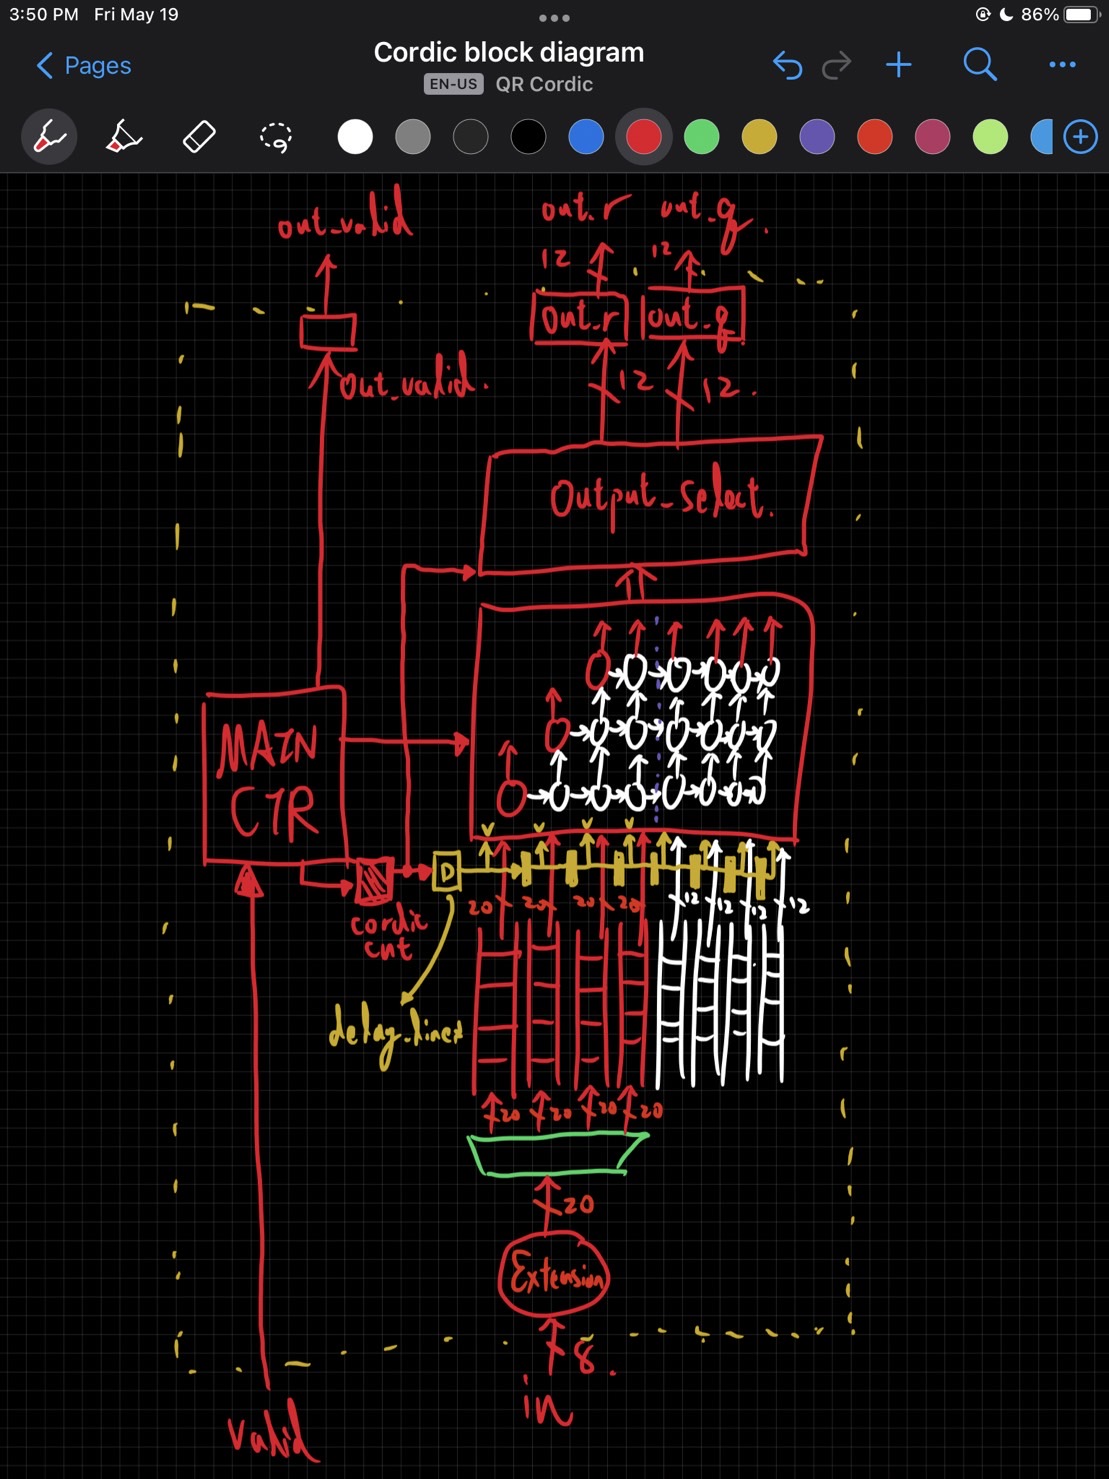 3:50 PM Fri May 19
86%
Pages
Cordic block diagram
EN-US QR Cordic
out_valid
out_r out_q.
12 12
out_r out_q
out_valid.
12 12.
Output_Select.
MAIN
CTR
D
20 20 20 20 12 12 12 12
cordic
cnt
20 20 20 20
20
Extension
8.
in
valid